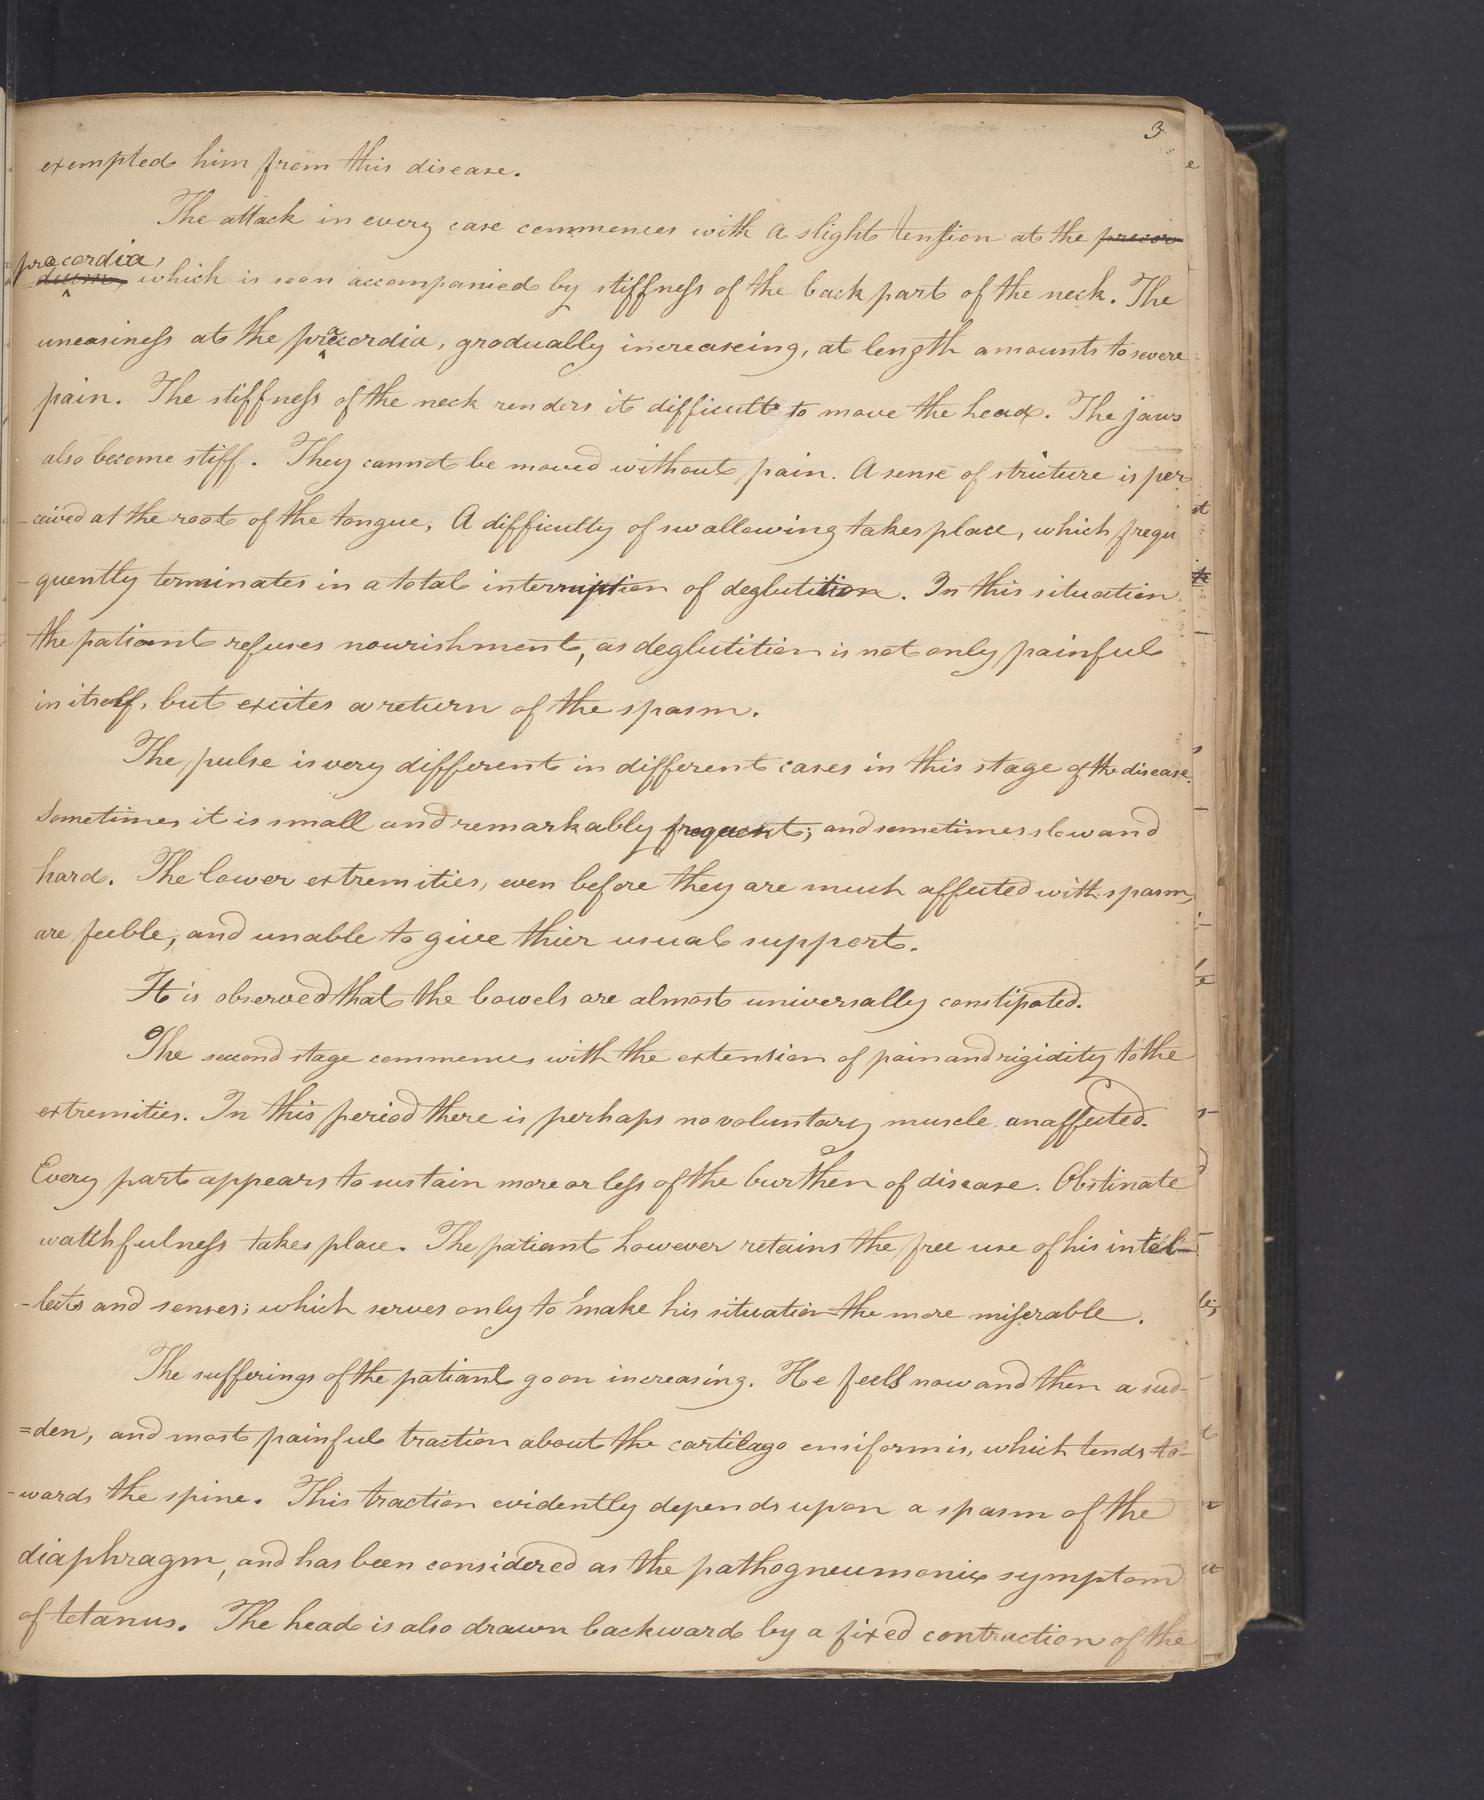 3
exempted him from this disease.
The attack in every case commences with a slight tension at the precor
præcordia,
dium, which is soon accompanied by stiffness of the back part of the neck. The
uneasiness at the præcordia, gradually increaseing, at length amounts to severe
pain. The stiffness of the neck renders it difficult to move the head. The jaws
also become stiff. They cannot be moved without pain. A sense of stricture is per
-ceived at the root of the tongue, A difficulty of swallowing takes place, which frequ
-quently terminates in a total interruption of deglutition. In this situation
the patiant refuses nourishment, as deglutition is not only painful
in itself, but excites a return of the spasm.
The pulse is very different in different cases in this stage of the disease.
Sometimes it is small and remarkably frequent; and sometimes slow and
hard. The lower extremities, even before they are much affected with spasm,
are feeble, and unable to give thier usual support.
It is observed that the bowels are almost universally constipated.
The second stage commences with the extension of pain and rigidity to the
extremities. In this period there is perhaps no voluntary muscle unaffected.
Every part appears to sustain more or less of the burthen of disease. Obstinate
watchfulness takes place. The patiant however retains the free use of his intel-
-lects and senses; which serves only to make his situation the more miserable.
The sufferings of the patiant go on increasing. He feels now and then a sud-
=den, and most painful traction about the cartilago ensiformis, which tends to-
-wards the spine. This traction evidently depends upon a spasm of the
diaphragm, and has been considered as the pathogneumonix symptom
of tetanus. The head is also drawn backward by a fixed contraction of the